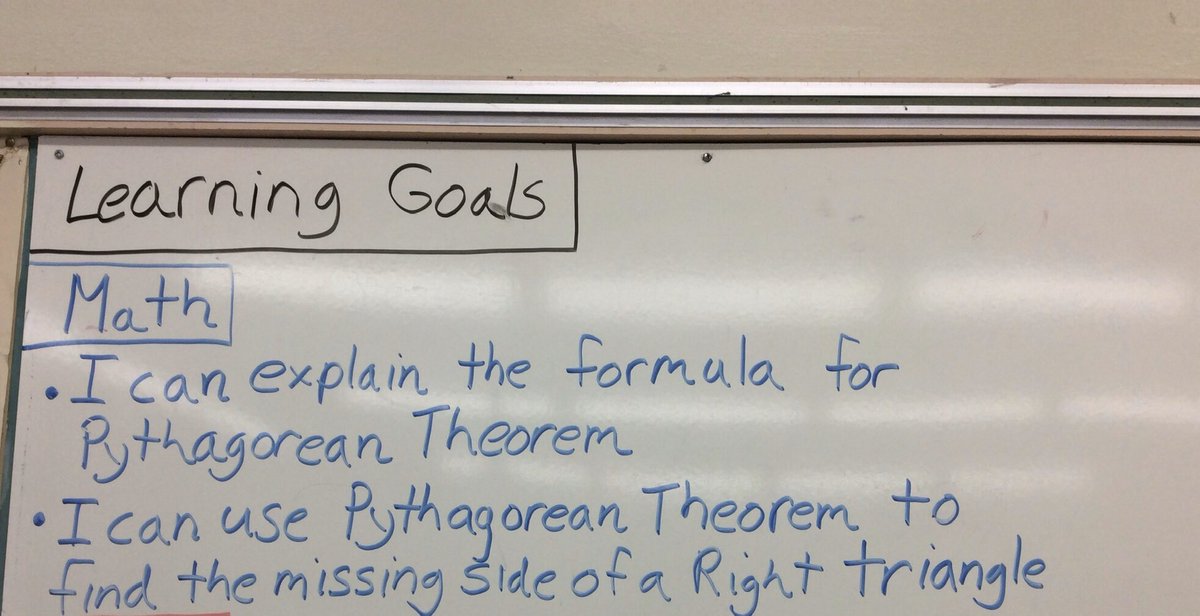 Learning Goals
Math
• I can explain the formula for
Pythagorean Theorem
• I can use Pythagorean Theorem to
find the missing side of a Right triangle